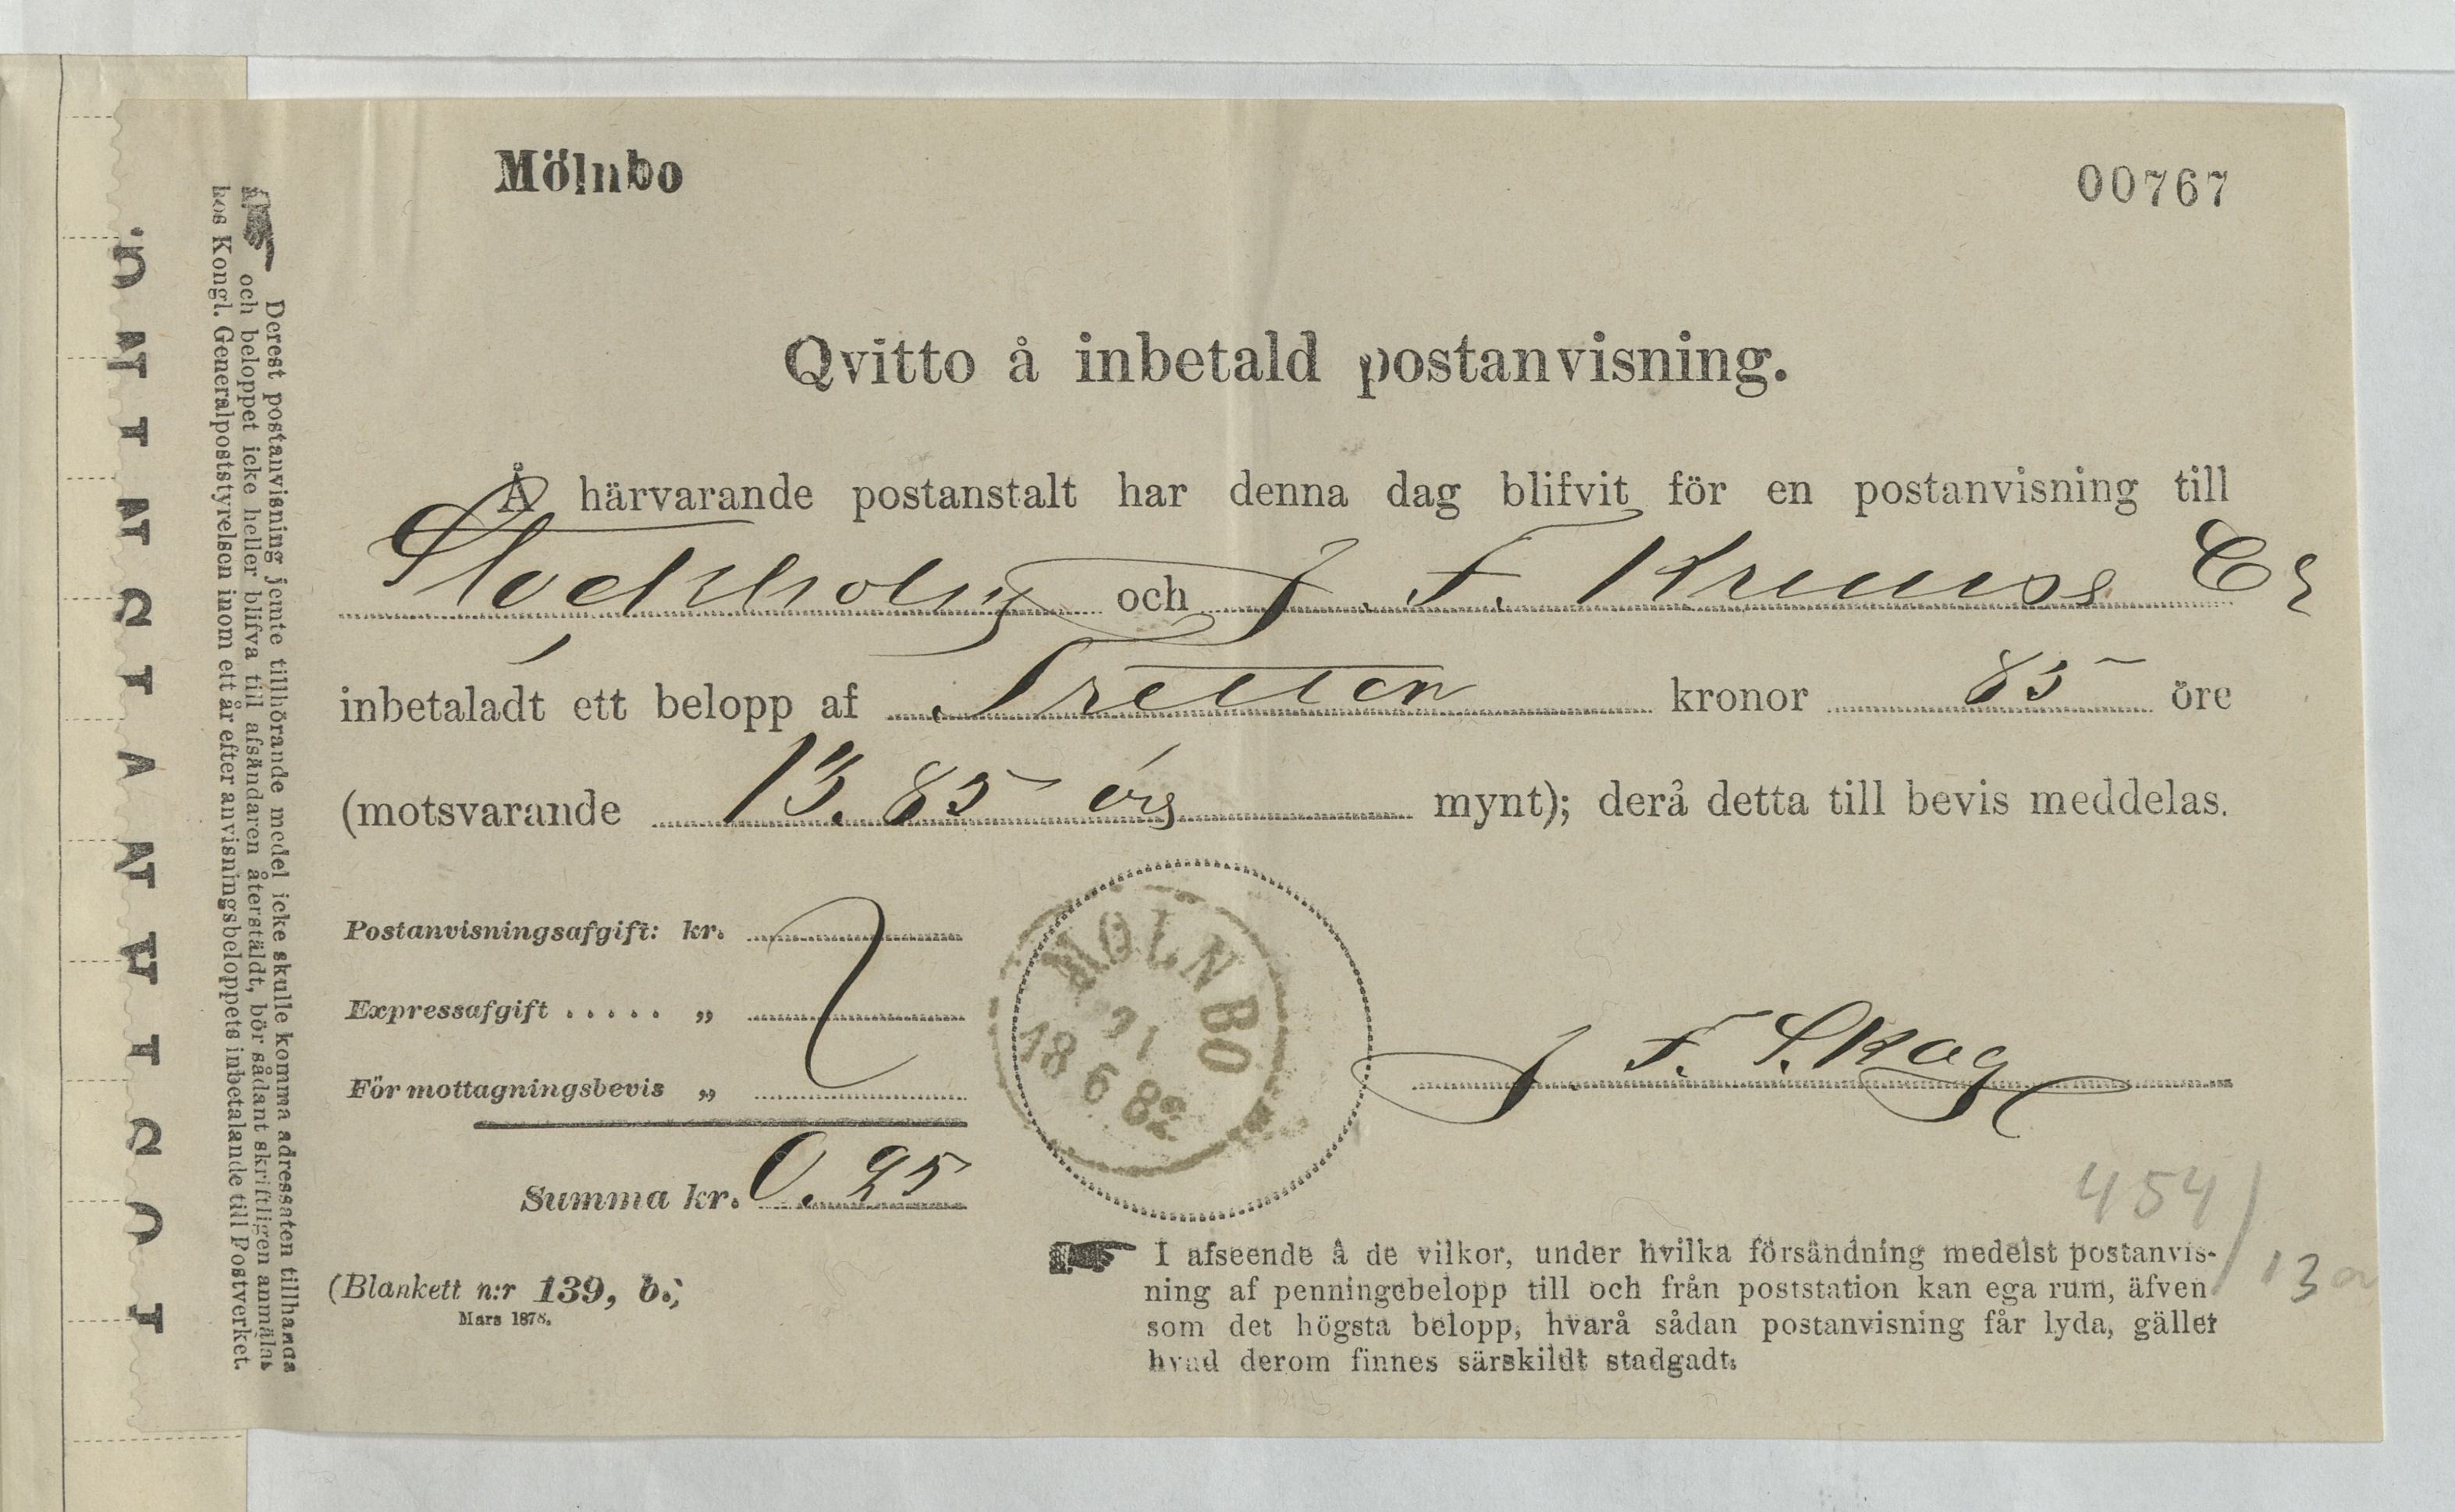 Mölnbo
00767
Qvitto å inbetald postanvisning.
Å härvarande postanstalt har denna dag blifvit för en postanvisning till
Stockholm och J. F. Krauss Er
inbetaladt ett belopp af Tretton kronor 85 öre
(motsvarande 13.85 örs mynt); derå detta till bevis meddelas.
Postanvisningsafgift: kr.
Expressafgift ..... „
För mottagningsbevis „
Summa kr. 0.25
MÖLNBO
21
18 6 82
J. F. Skog
454/13a
(Blankett n:r 139, b.)
Mars 1878.
I afseende å de vilkor, under hvilka försändning medelst postanvis-
ning af penningebelopp till och från poststation kan ega rum, äfven
som det högsta belopp, hvarå sådan postanvisning får lyda, gäller
hvad derom finnes särskildt stadgadt.
Derest postanvisning jemte tillhörande medel icke skulle komma adressaten tillhanda
och beloppet icke heller blifva till afsändaren återstäldt, bör sådant skriftligen anmälas
hos Kongl. Generalpoststyrelsen inom ett år efter anvisningsbeloppets inbetalande till Postverket.